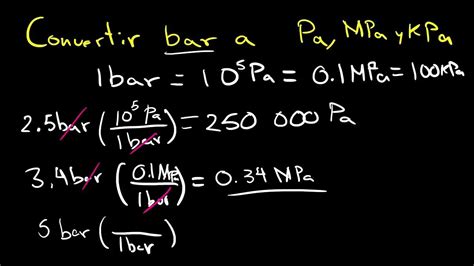 Convertir bar a Pa, MPa y KPa
1bar = 10⁵Pa = 0.1MPa = 100KPa
2.5bar (10⁵Pa/1bar) = 250 000 Pa
3,4bar (0.1MP/1bar) = 0.34 MPa
5 bar ( /1bar)